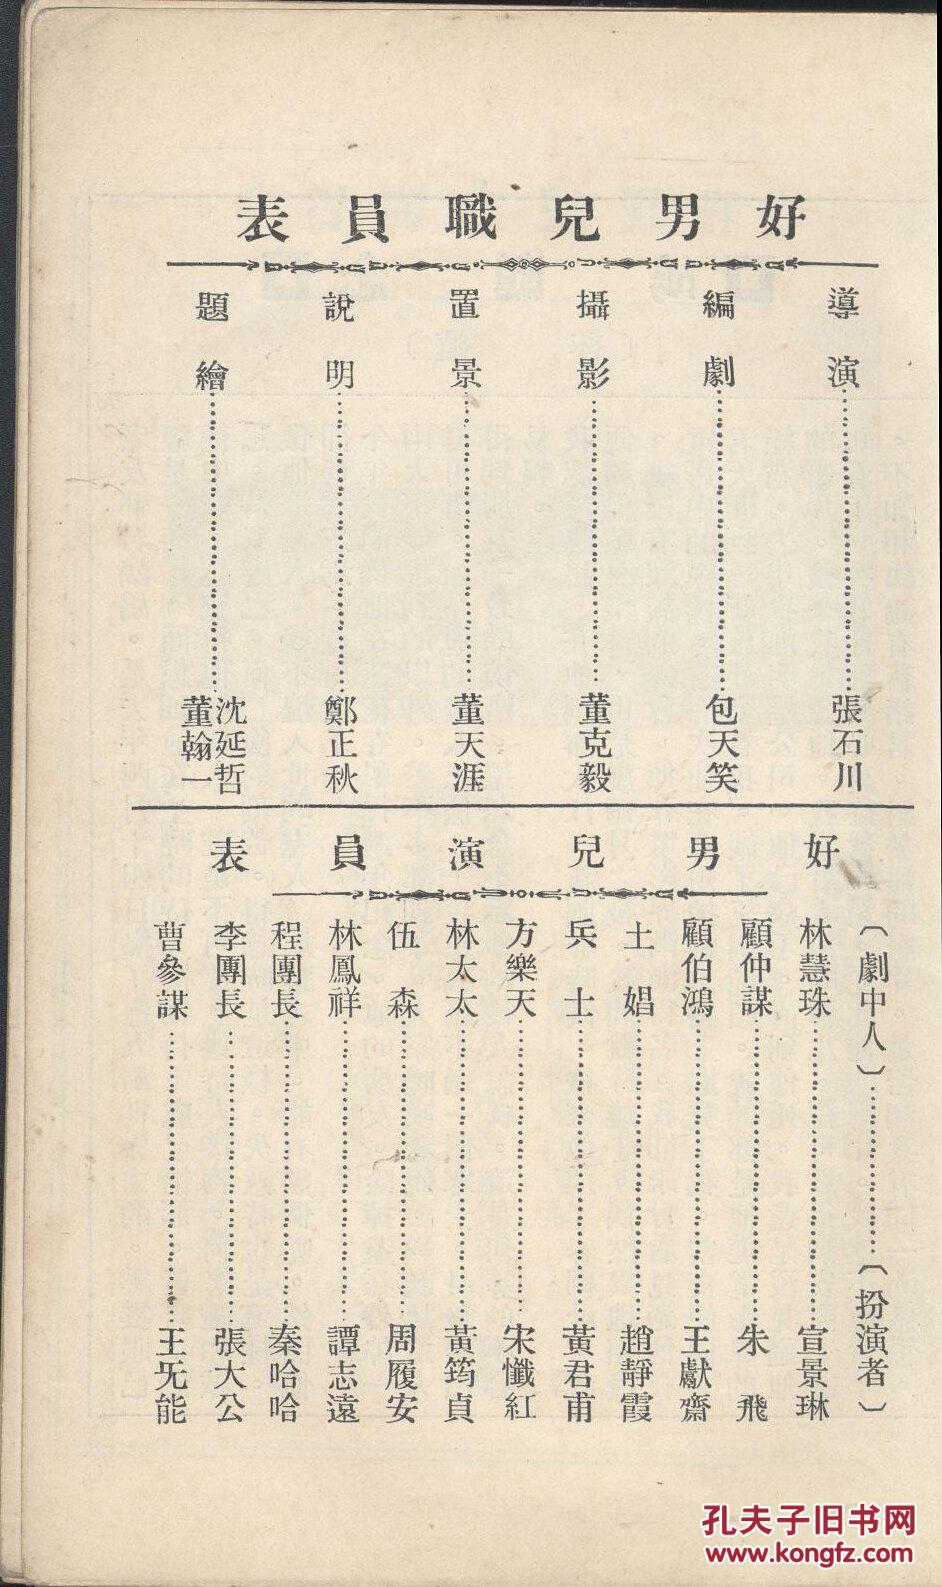 好男兒職員表
導演⋯⋯張石川
編劇⋯⋯包天笑
攝影⋯⋯董克毅
置景⋯⋯董天涯
說明⋯⋯鄭正秋
題繪⋯⋯沈延哲 董翰一
好男兒演員表
〔劇中人〕⋯⋯〔扮演者〕
林慧珠⋯⋯宣景琳
顧仲謀⋯⋯朱飛
顧伯鴻⋯⋯王獻齋
土娼⋯⋯趙靜霞
兵士⋯⋯黃君甫
方樂天⋯⋯宋懺紅
林太太⋯⋯黃筠貞
伍森⋯⋯周履安
林鳳祥⋯⋯譚志遠
程團長⋯⋯秦哈哈
李團長⋯⋯張大公
曹參謀⋯⋯王旡能
孔夫子旧书网
www.kongfz.com